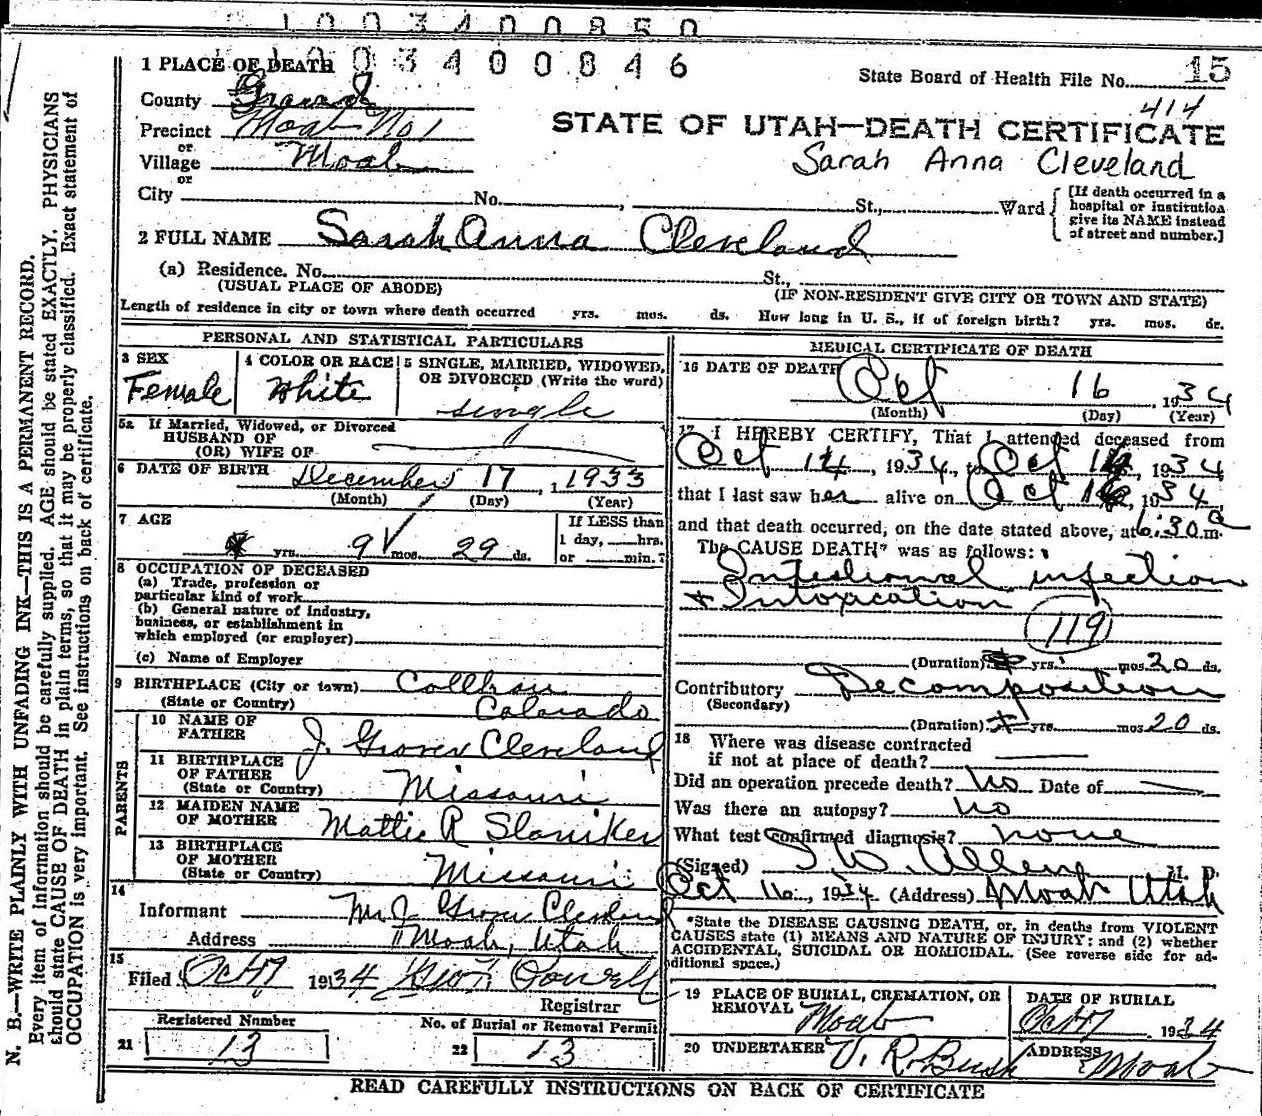 1003400850
1003400846
1 PLACE OF DEATH
State Board of Health File No. 15
County Grand
414
Precinct Moab No 1
STATE OF UTAH—DEATH CERTIFICATE
or
Village Moab
Sarah Anna Cleveland
or
City No. , St., Ward
[If death occurred in a
hospital or institution
give its NAME instead
of street and number.]
2 FULL NAME Sarah Anna Cleveland
(a) Residence. No. St.,
(USUAL PLACE OF ABODE) (IF NON-RESIDENT GIVE CITY OR TOWN AND STATE)
Length of residence in city or town where death occurred yrs. mos. ds. How long in U. S., if of foreign birth? yrs. mos. ds.
PERSONAL AND STATISTICAL PARTICULARS
3 SEX
Female
4 COLOR OR RACE
White
5 SINGLE, MARRIED, WIDOWED,
OR DIVORCED (Write the word)
single
5a If Married, Widowed, or Divorced
HUSBAND OF
(OR) WIFE OF
6 DATE OF BIRTH December 17, 1933
(Month) (Day) (Year)
7 AGE
yrs. 9 mos. 29 ds.
If LESS than
1 day, hrs.
or min. ?
8 OCCUPATION OF DECEASED
(a) Trade, profession or
particular kind of work
(b) General nature of industry,
business, or establishment in
which employed (or employer)
(c) Name of Employer
9 BIRTHPLACE (City or town)
(State or Country) Colorado
PARENTS
10 NAME OF
FATHER J. Grover Cleveland
11 BIRTHPLACE
OF FATHER
(State or Country) Missouri
12 MAIDEN NAME
OF MOTHER Mattie R Sloniker
13 BIRTHPLACE
OF MOTHER
(State or Country) Missouri
14
Informant Mr J Grover Cleveland
Address Moab, Utah
15
Filed Oct 17 1934 Geo Powell
Registrar
Registered Number
21 13
No. of Burial or Removal Permit
22 13
MEDICAL CERTIFICATE OF DEATH
16 DATE OF DEATH Oct 16, 1934
(Month) (Day) (Year)
17 I HEREBY CERTIFY, That I attended deceased from
Oct 14, 1934, to Oct 16, 1934
that I last saw her alive on Oct 16, 1934,
and that death occurred, on the date stated above, at 6:30 a m.
The CAUSE DEATH* was as follows:
Intestional infection
+ Intoxication
119
(Duration) yrs. mos. 20 ds.
Contributory Decomposition
(Secondary)
(Duration) yrs. mos. 20 ds.
18 Where was disease contracted
if not at place of death?
Did an operation precede death? No Date of
Was there an autopsy? no
What test confirmed diagnosis? none
(Signed) I W Allen M. D.
Oct 16, 1934 (Address) Moab Utah
*State the DISEASE CAUSING DEATH, or, in deaths from VIOLENT
CAUSES state (1) MEANS AND NATURE OF INJURY; and (2) whether
ACCIDENTAL, SUICIDAL OR HOMICIDAL. (See reverse side for ad-
ditional space.)
19 PLACE OF BURIAL, CREMATION, OR
REMOVAL Moab
DATE OF BURIAL
Oct 17 1934
20 UNDERTAKER V. R. Bush
ADDRESS Moab
READ CAREFULLY INSTRUCTIONS ON BACK OF CERTIFICATE
N. B.—WRITE PLAINLY WITH UNFADING INK—THIS IS A PERMANENT RECORD.
Every item of information should be carefully supplied. AGE should be stated EXACTLY. PHYSICIANS
should state CAUSE OF DEATH in plain terms, so that it may be properly classified. Exact statement of
OCCUPATION is very important. See instructions on back of certificate.